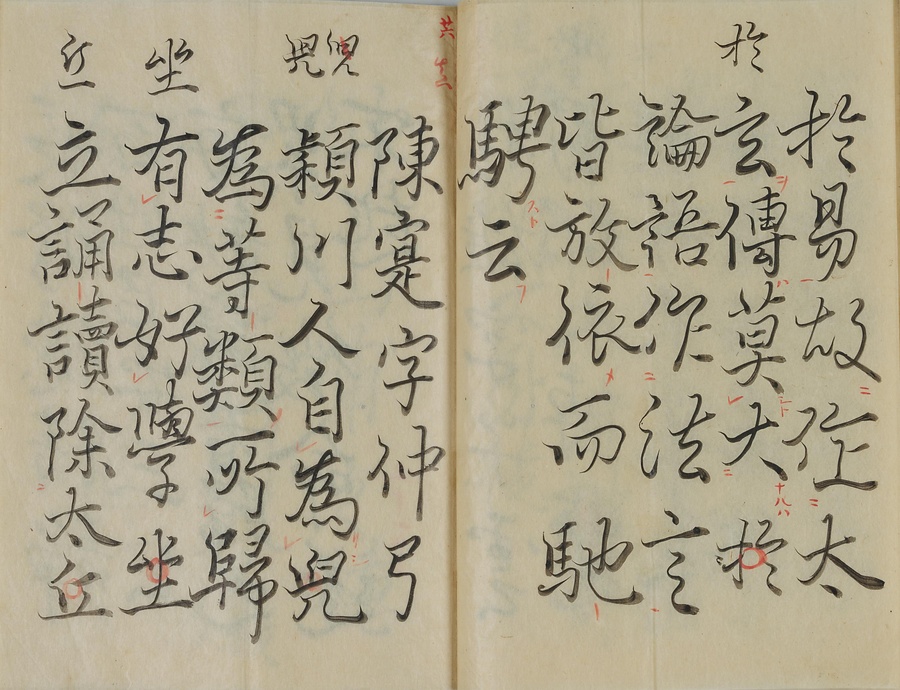 於
於易故作太
玄傳莫大於
論語作法言
皆放依而馳
騁云
陳寔字仲弓
兒兒
穎川人自為兒
為等類所歸
坐
有志好學坐
丘
立誦讀除太丘